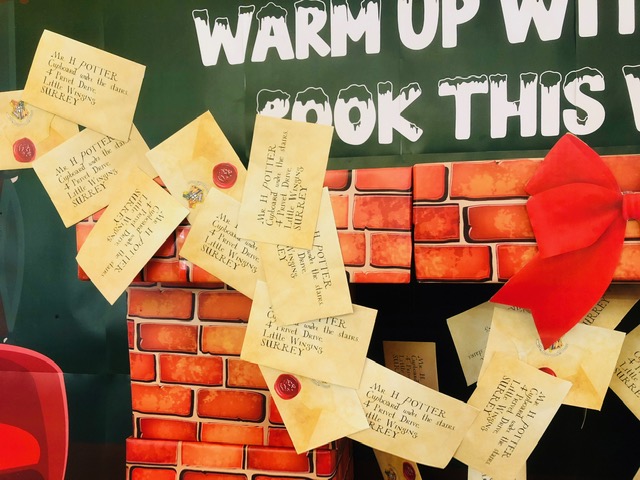 WARM UP WIT
BOOK THIS W
Mr. H POTTER
Cupboard under the stairs
4 Privet Drive
Little Winging
SURREY
Mr. H POTTER
Cupboard under the stairs
4 Privet Drive
Little Winging
SURREY
Mr. H POTTER
Cupboard under the stairs
4 Privet Drive
Little Winging
SURREY
Mr. H POTTER
Cupboard under the stairs
4 Privet Drive
Little Winging
SURREY
Mr. H
4 Privet Drive
Little Winging
SURREY
4 Privet Drive
Little Winging
SURREY
Cupboard under the stairs
4 Privet Drive
Little Winging
SURREY
Mr. H POTTER
Cupboard under the stairs
4 Privet Drive
Little Winging
SURREY
Mr. H POTTER
Cupboard under the stairs
4 Privet Drive
Little Winging
SURREY
SURREY